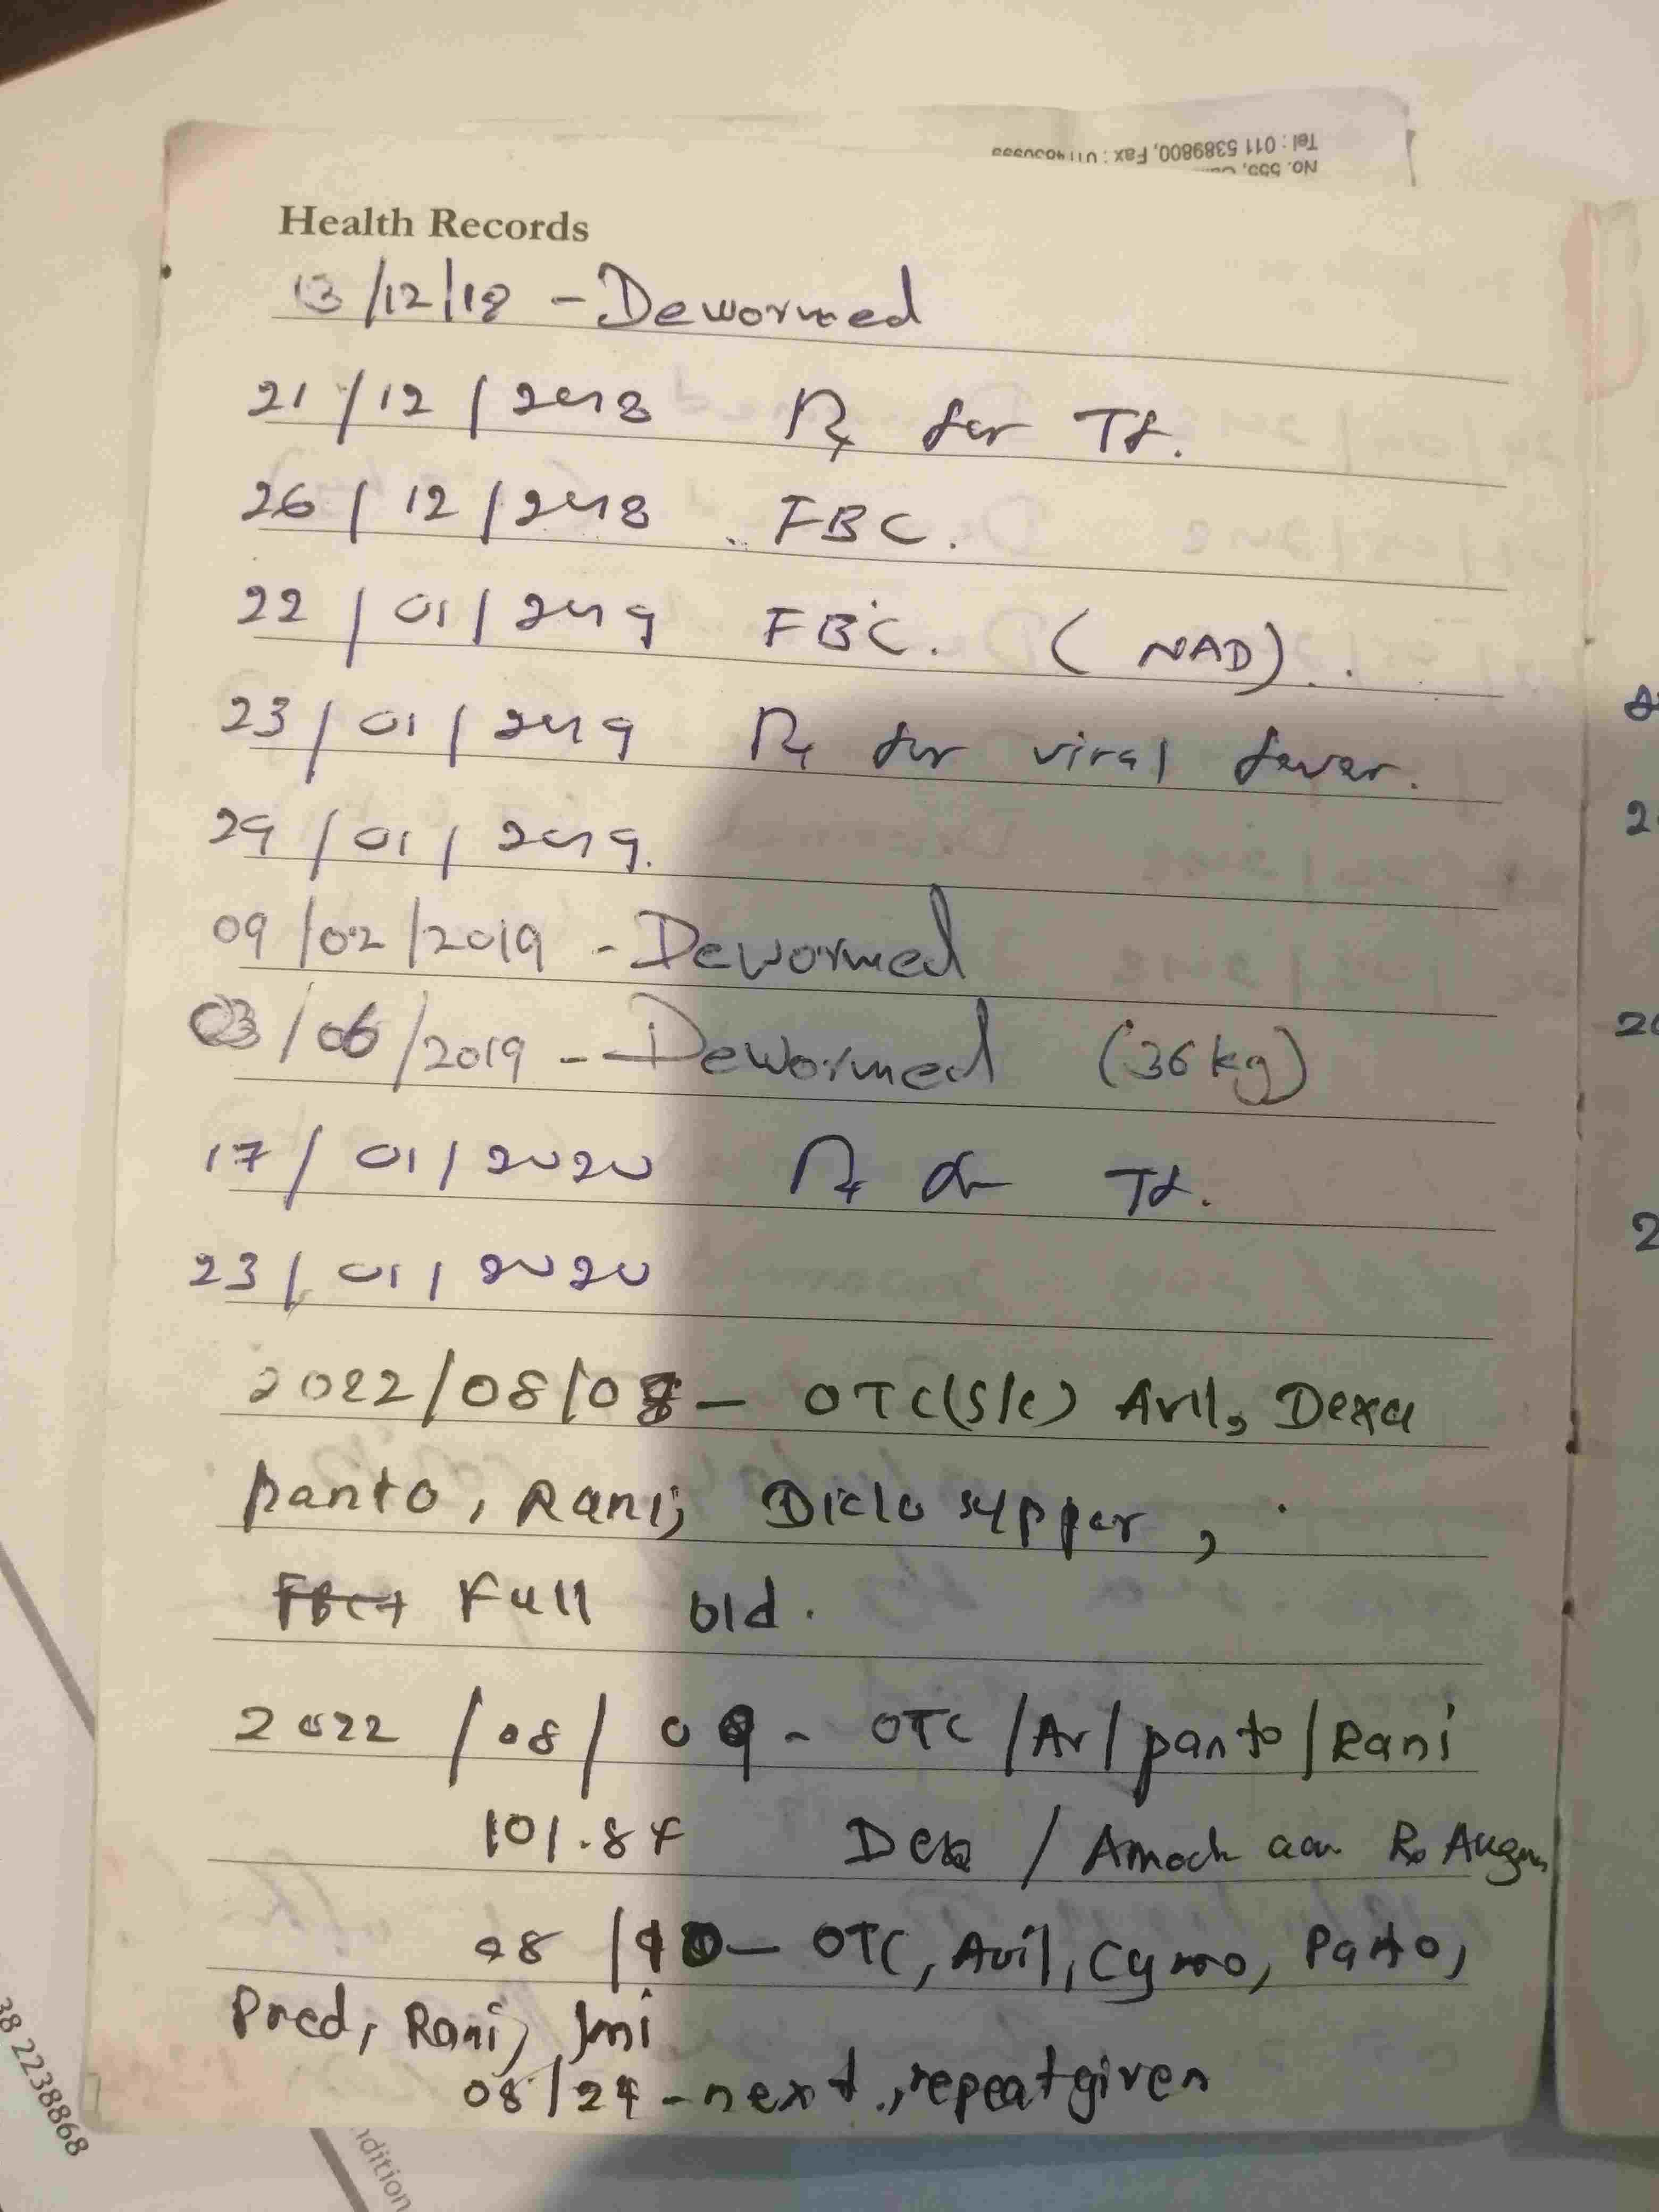 Tel : 011 5389800, Fax :
No. 555,
Health Records
13/12/18 - Dewormed
21/12/2018 Rx for Tf.
26/12/2018 FBC.
22/01/2019 FBC. (NAD).
23/01/2019 Rx for viral fever.
29/01/2019.
09/02/2019 - Dewormed
03/06/2019 - Dewormed (36kg)
17/01/2020 Rx for Tf.
23/01/2020
2022/08/08 - OTC(S/C) Avil, Dexa
panto, Rani, Diclo sypper,
Full bld.
2022/08/09 - OTC/Av/panto/Rani
101.8F Dexa /
08/10 - OTC, Avil, Cymo, Panto,
Pred, Rani, Imi
08/24 - next, repeat given
38 2238868
dition